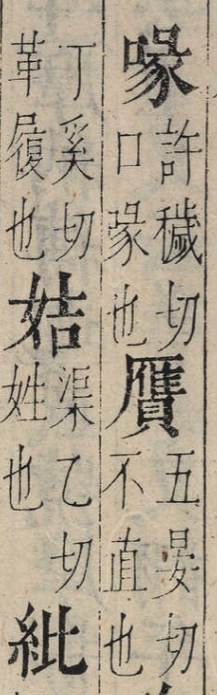 喙
許穢切
口喙也
贋
五晏切
不直也
丁奚切
革履也
姞
渠乙切
姓也